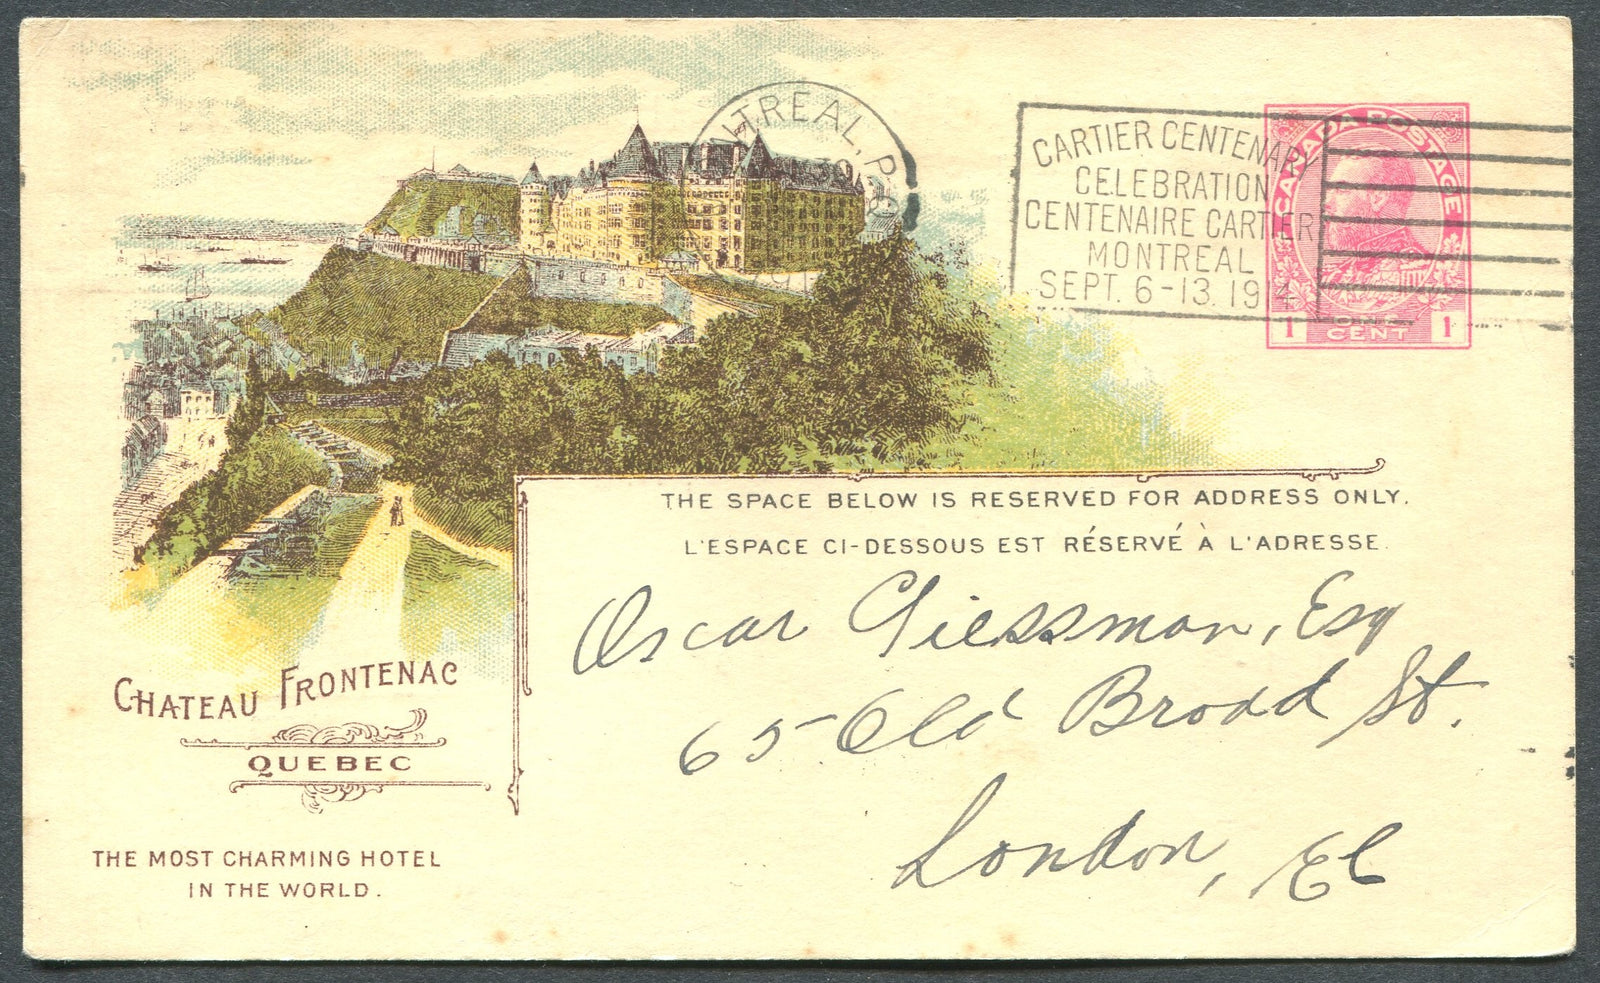 MONTREAL, P.
30
191
CARTIER CENTENARY
CELEBRATION
CENTENAIRE CARTIER
MONTREAL
SEPT. 6-13. 19
CANADA POSTAGE
1 ONE CENT 1
THE SPACE BELOW IS RESERVED FOR ADDRESS ONLY.
L'ESPACE CI-DESSOUS EST RÉSERVÉ À L'ADRESSE.
Oscar Giessman, Esq
65 Old Broad St.
London, EC
CHATEAU FRONTENAC
QUEBEC
THE MOST CHARMING HOTEL
IN THE WORLD.